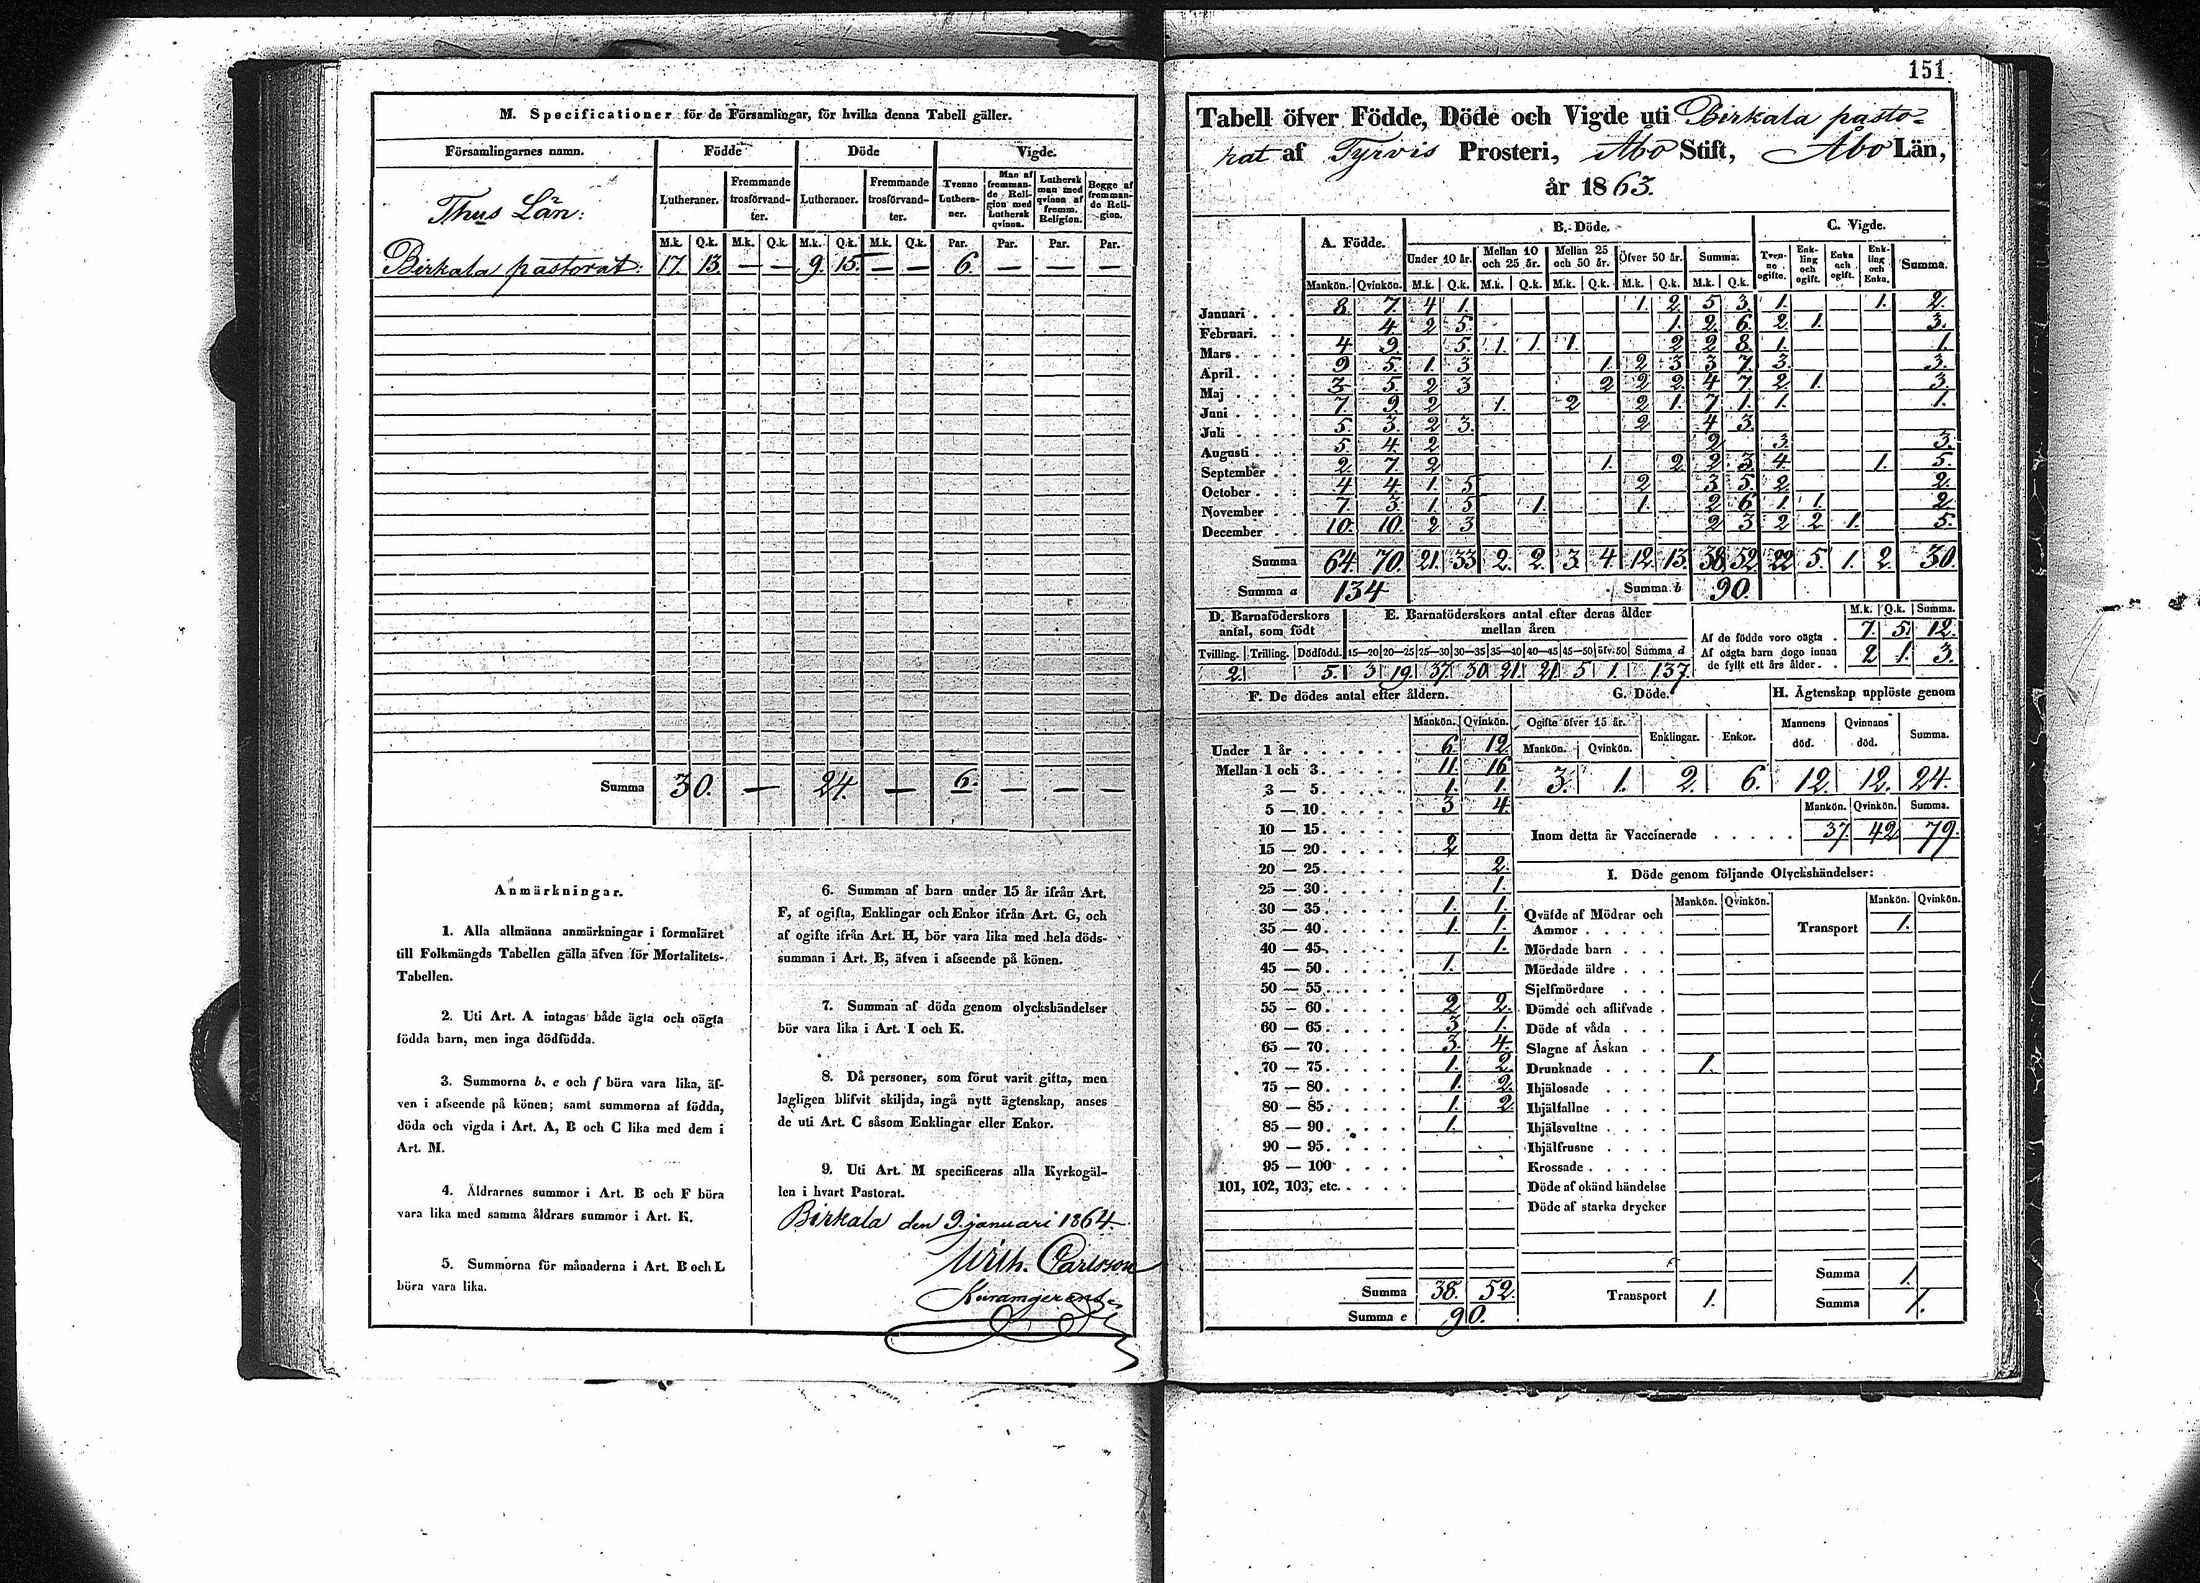 M. Specificationer för de Församlingar, för hvilka denna Tabell gäller.
Församlingarnes namn. Födde Döde Vigde.
Lutheraner. Fremmande trosförvandter. Lutheraner. Fremmande trosförvandter. Tvenne Lutheraner. Man af fremmande Religion med Luthersk qvinna. Luthersk man med qvinna af fremm. Religion. Begge af fremmande Religion.
Thus Län:
M.k. Q.k. M.k. Q.k. M.k. Q.k. M.k. Q.k. Par. Par. Par. Par.
Birkala pastorat: 17. 13. — — 9. 15. — — 6. — — —
Summa 30. — 24. — 6. — — —
Anmärkningar.
1. Alla allmänna anmärkningar i formuläret
till Folkmängds Tabellen gälla äfven för Mortalitets-
Tabellen.
2. Uti Art. A intagas både ägta och oägta
födda barn, men inga dödfödda.
3. Summorna b, e och f böra vara lika, äf-
ven i afseende på könen; samt summorna af födda,
döda och vigda i Art. A, B och C lika med dem i
Art. M.
4. Äldrarnes summor i Art. B och F böra
vara lika med samma åldrars summor i Art. K.
5. Summorna för månaderna i Art. B och L
böra vara lika.
6. Summan af barn under 15 år ifrån Art.
F, af ogifta, Enklingar och Enkor ifrån Art. G, och
af ogifte ifrån Art. H, bör vara lika med hela döds-
summan i Art. B, äfven i afseende på könen.
7. Summan af döda genom olyckshändelser
bör vara lika i Art. I och K.
8. Då personer, som förut varit gifta, men
lagligen blifvit skiljda, ingå nytt ägtenskap, anses
de uti Art. C såsom Enklingar eller Enkor.
9. Uti Art. M specificeras alla Kyrkogäl-
len i hvart Pastorat.
Birkala den 9. januari 1864.
Wilh. Carlsson
151
Tabell öfver Födde, Döde och Vigde uti Birkala pasto-
rat af Tyrvis Prosteri, Åbo Stift, Åbo Län,
år 1863.
A. Födde. B. Döde. C. Vigde.
Under 10 år. Mellan 10 och 25 år. Mellan 25 och 50 år. Öfver 50 år. Summa. Tvenne ogifte. Enkling och ogift. Enka och ogift. Enkling och Enka. Summa.
Mankön. Qvinkön. M.k. Q.k. M.k. Q.k. M.k. Q.k. M.k. Q.k. M.k. Q.k.
Januari . . . 8. 7. 4 1. 1. 2. 5 3. 1. 1. 2.
Februari. . . 4 2 5. 1. 2. 6. 2. 1. 3.
Mars . . . . 4 9. 5. 1. 1. 1. 2 2 8. 1. 1.
April . . . . 9 5. 1. 3 1. 2 3 3 7. 3. 3.
Maj . . . . 3 5. 2 3 2 2 2. 4 7. 2. 1. 3.
Juni . . . . 7. 9. 2 1. 2 2 1. 7. 1. 1. 1.
Juli . . . . 5. 3. 2 3. 2 4 3.
Augusti . . . 5. 4. 2 2. 3. 3.
September . . 2. 7. 2 1. 2. 2. 3. 4. 1. 5.
October . . . 4 4. 1. 5 2 3 5. 2. 2.
November . . 7. 3. 1. 5 1. 1. 2 6 1. 1. 2.
December . . 10. 10. 2 3 2 3 2 2. 1. 5.
Summa 64. 70. 21. 33 2. 2. 3. 4. 12. 13. 38. 52. 22 5. 1. 2. 30.
Summa a 134 Summa b 90.
D. Barnaföderskors antal, som födt
Tvilling. Trilling. Dödfödd.
2. 5.
E. Barnaföderskors antal efter deras ålder mellan åren
15—20 20—25 25—30 30—35 35—40 40—45 45—50 öfv. 50 Summa d
3 19. 37. 30. 21. 21. 5 1. 137.
M.k. Q.k. Summa.
Af de födde voro oägta . 7. 5. 12.
Af oägta barn dogo innan de fyllt ett års ålder . . 2 1. 3.
F. De dödes antal efter åldern.
Mankön. Qvinkön.
Under 1 år . . . . . . 6. 12.
Mellan 1 och 3. . . . . 11. 16
3 — 5. . . . . 1. 1.
5 — 10. . . . . 3 4.
10 — 15. . . . .
15 — 20. . . . . 2
20 — 25. . . . . 2.
25 — 30. . . . . 1.
30 — 35. . . . . 1. 1.
35 — 40. . . . . 1. 1.
40 — 45. . . . . 1.
45 — 50. . . . . 1.
50 — 55. . . . .
55 — 60. . . . . 2 2.
60 — 65. . . . . 3 1.
65 — 70. . . . . 3. 4.
70 — 75. . . . . 1. 2.
75 — 80. . . . . 1. 2.
80 — 85. . . . . 1. 2.
85 — 90. . . . . 1.
90 — 95. . . . .
95 — 100 . . . .
101, 102, 103, etc. . . . .
Summa 38. 52.
Summa e 90.
G. Döde.
Ogifte öfver 15 år. Enklingar. Enkor.
Mankön. Qvinkön.
3. 1. 2. 6.
H. Ägtenskap upplöste genom
Mannens död. Qvinnans död. Summa.
12. 12. 24.
Mankön. Qvinkön. Summa.
Inom detta år Vaccinerade . . . . . 37. 42. 79.
I. Döde genom följande Olyckshändelser:
Mankön. Qvinkön. Mankön. Qvinkön.
Qväfde af Mödrar och Ammor . . . . . Transport 1.
Mördade barn . . .
Mördade äldre . . .
Sjelfmördare . . .
Dömde och aflifvade .
Döde af våda . . .
Slagne af Åskan . .
Drunknade . . . . 1.
Ihjälosade . . . .
Ihjälfallne . . . .
Ihjälsvultne . . . .
Ihjälfrusne . . . .
Krossade . . . . .
Döde af okänd händelse
Döde af starka drycker
Summa 1.
Transport 1. Summa 1.